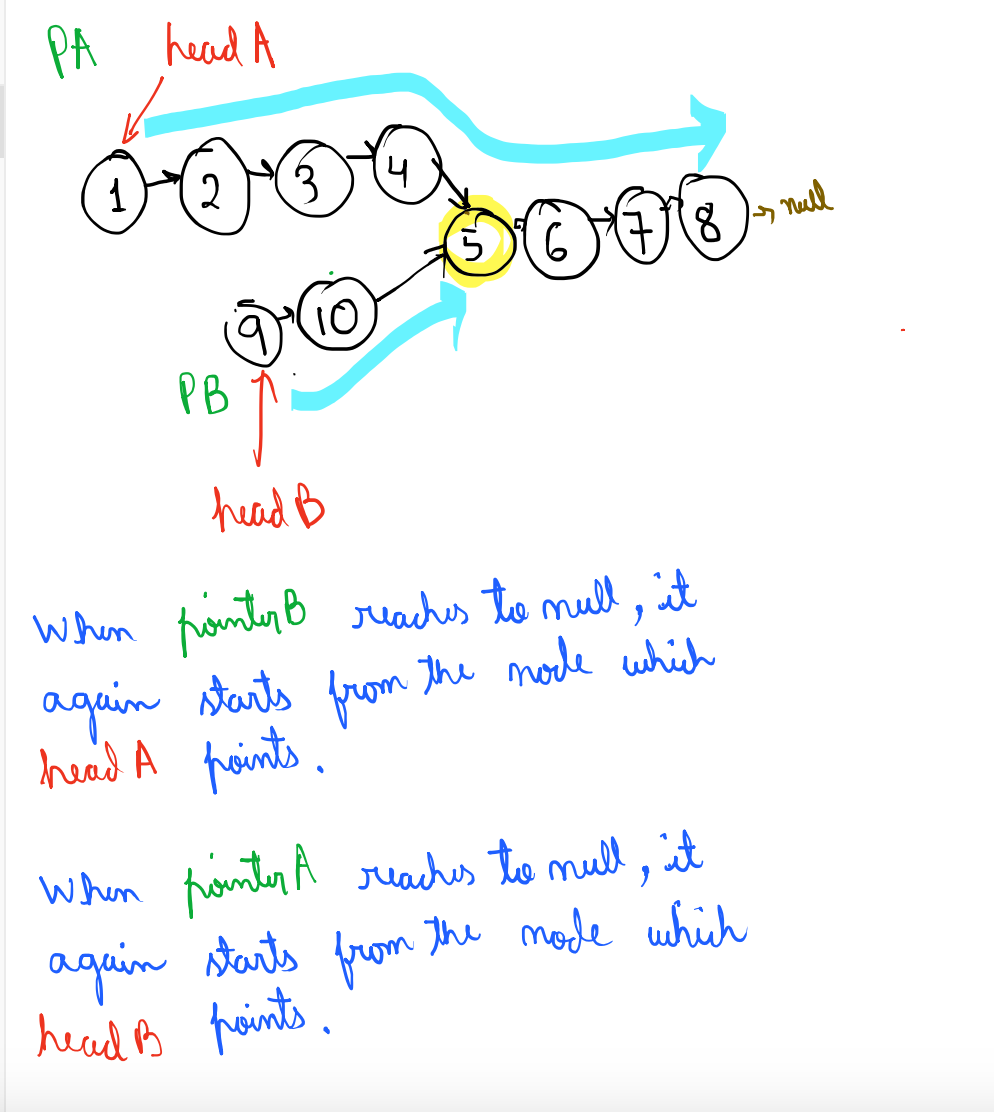 PA head A
1 2 3 4
5 6 7 8 null
9 10
PB
head B
When pointer B reaches to null, it
again starts from the node which
head A points.
When pointer A reaches to null, it
again starts from the node which
head B points.